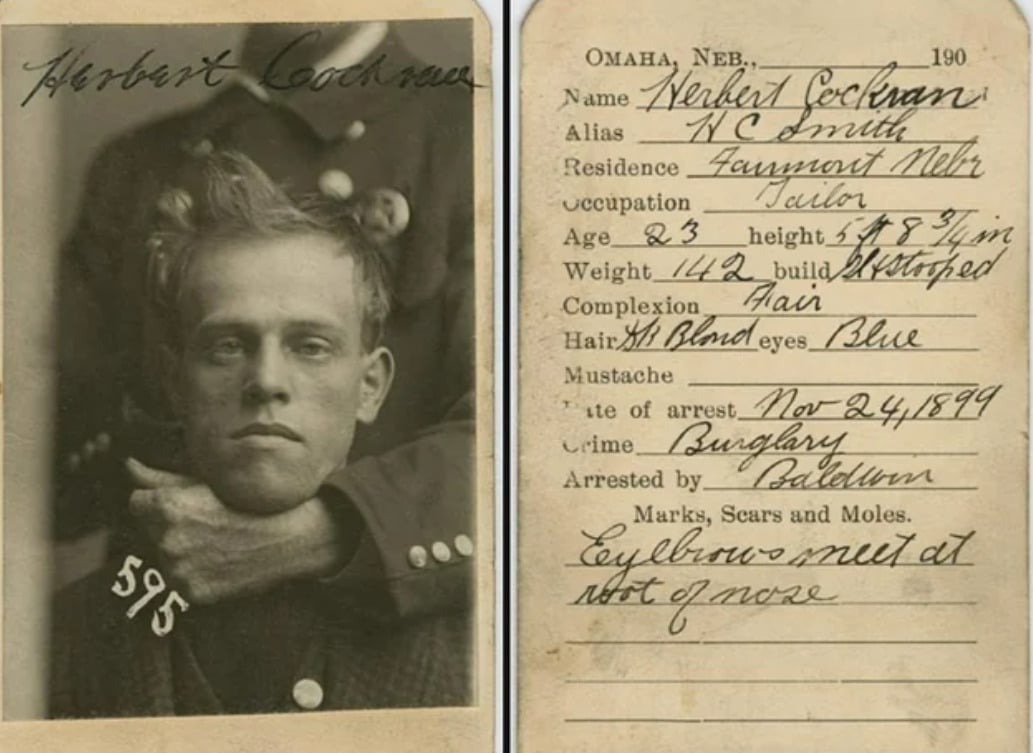 Herbert Cockran
595
OMAHA, NEB., 190
Name Herbert Cockran
Alias H C Smith
Residence Fairmont Nebr
Occupation Tailor
Age 23 height 5 ft 8 3/4 in
Weight 142 build Slt stooped
Complexion Fair
Hair Dk Blond eyes Blue
Mustache
Date of arrest Nov 24, 1899
Crime Burglary
Arrested by Baldwin
Marks, Scars and Moles.
Eyelbrows meet at
root of nose